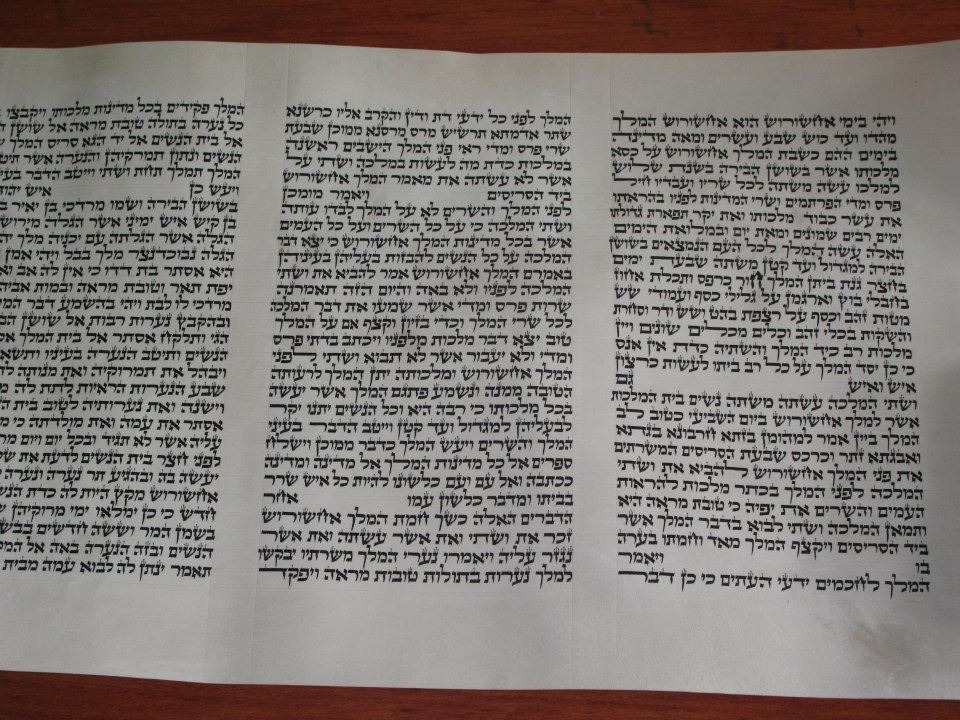 ויהי בימי אחשורוש הוא אחשורוש המלך
מהדו ועד כוש שבע ועשרים ומאה מדינה
בימים ההם כשבת המלך אחשורוש על כסא
מלכותו אשר בשושן הבירה בשנת שלוש
למלכו עשה משתה לכל שריו ועבדיו חיל
פרס ומדי הפרתמים ושרי המדינות לפניו בהראתו
את עשר כבוד מלכותו ואת יקר תפארת גדולתו
ימים רבים שמונים ומאת יום ובמלואת הימים
האלה עשה המלך לכל העם הנמצאים בשושן
הבירה למגדול ועד קטן משתה שבעת ימים
בחצר גנת ביתן המלך חור כרפס ותכלת אחוז
בחבלי בוץ וארגמן על גלילי כסף ועמודי שש
מטות זהב וכסף על רצפת בהט ושש ודר וסחרת
והשקות בכלי זהב וכלים מכלים שונים ויין
מלכות רב כיד המלך והשתיה כדת אין אנס
כי כן יסד המלך על כל רב ביתו לעשות כרצון
איש ואיש גם
ושתי המלכה עשתה משתה נשים בית המלכות
אשר למלך אחשורוש ביום השביעי כטוב לב
המלך ביין אמר למהומן בזתא חרבונא בגתא
ואבגתא זתר וכרכס שבעת הסריסים המשרתים
את פני המלך אחשורוש להביא את ושתי
המלכה לפני המלך בכתר מלכות להראות
העמים והשרים את יפיה כי טובת מראה היא
ותמאן המלכה ושתי לבוא בדבר המלך אשר
ביד הסריסים ויקצף המלך מאד וחמתו בערה
בו ויאמר
המלך לחכמים ידעי העתים כי כן דבר
המלך לפני כל ידעי דת ודין והקרב אליו כרשנא
שתר אדמתא תרשיש מרס מרסנא ממוכן שבעת
שרי פרס ומדי ראי פני המלך הישבים ראשנה
במלכות כדת מה לעשות במלכה ושתי על
אשר לא עשתה את מאמר המלך אחשורוש
ביד הסריסים ויאמר מומכן
לפני המלך והשרים לא על המלך לבדו עותה
ושתי המלכה כי על כל השרים ועל כל העמים
אשר בכל מדינות המלך אחשורוש כי יצא דבר
המלכה על כל הנשים להבזות בעליהן בעיניהן
באמרם המלך אחשורוש אמר להביא את ושתי
המלכה לפניו ולא באה והיום הזה תאמרנה
שרות פרס ומדי אשר שמעו את דבר המלכה
לכל שרי המלך וכדי בזיון וקצף אם על המלך
טוב יצא דבר מלכות מלפניו ויכתב בדתי פרס
ומדי ולא יעבור אשר לא תבוא ושתי לפני
המלך אחשורוש ומלכותה יתן המלך לרעותה
הטובה ממנה ונשמע פתגם המלך אשר יעשה
בכל מלכותו כי רבה היא וכל הנשים יתנו יקר
לבעליהן למגדול ועד קטן וייטב הדבר בעיני
המלך והשרים ויעש המלך כדבר ממוכן וישלח
ספרים אל כל מדינות המלך אל מדינה ומדינה
ככתבה ואל עם ועם כלשונו להיות כל איש שרר
בביתו ומדבר כלשון עמו אחר
הדברים האלה כשך חמת המלך אחשורוש
זכר את ושתי ואת אשר עשתה ואת אשר
נגזר עליה ויאמרו נערי המלך משרתיו יבקשו
למלך נערות בתולות טובות מראה ויפקד
המלך פקידים בכל מדינות מלכותו ויקבצו
כל נערה בתולה טובת מראה אל שושן
אל בית הנשים אל יד הגא סריס המלך
הנשים ונתון תמרקיהן והנערה אשר
המלך תמלך תחת ושתי וייטב הדבר
ויעש כן איש
בשושן הבירה ושמו מרדכי בן יאיר
בן קיש איש ימיני אשר הגלה
הגלה אשר הגלתה עם יכניה מלך
הגלה נבוכדנצר מלך בבל ויהי אמן
היא אסתר בת דדי כי אין לה אב
יפת תאר וטובת מראה ובמות אביה
מרדכי לו לבת ויהי בהשמע דבר
ובהקבץ נערות רבות אל שושן
הגי ותלקח אסתר אל בית המלך
הנשים ותיטב הנערה בעיניו
ויבהל את תמרוקיה ואת מנותה
שבע הנערות הראיות לתת לה
וישנה ואת נערותיה לטוב בית
אסתר את עמה ואת מולדתה כי
עליה אשר לא תגיד ובכל יום ויום
לפני חצר בית הנשים לדעת את
יעשה בה ובהגיע תר נערה ונערה
אחשורוש מקץ היות לה כדת
חדש כי כן ימלאו ימי מרוקיהן
בשמן המר וששה חדשים
הנשים ובזה הנערה באה אל
תאמר ינתן לה לבוא עמה מבית